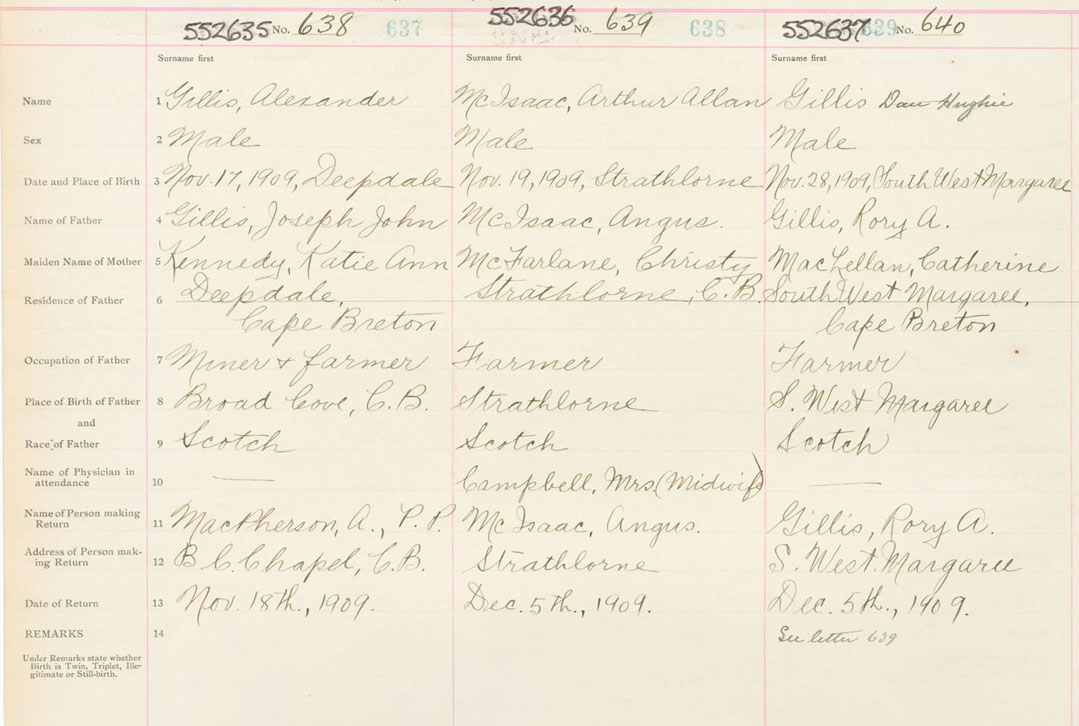 552635 No. 638 637 552636 No. 639 638 552637 639 No. 640
Surname first Surname first Surname first
Name 1 Gillis, Alexander McIsaac, Arthur Allan Gillis Dan Hughie
Sex 2 Male Male Male
Date and Place of Birth 3 Nov. 17, 1909, Deepdale Nov. 19, 1909, Strathlorne Nov. 28, 1909, South West Margaree
Name of Father 4 Gillis, Joseph John McIsaac, Angus. Gillis, Rory A.
Maiden Name of Mother 5 Kennedy, Katie Ann McFarlane, Christy MacLellan, Catherine
Residence of Father 6 Deepdale, Strathlorne, C.B. South West Margaree,
Cape Breton Cape Breton
Occupation of Father 7 Miner & farmer Farmer Farmer
Place of Birth of Father 8 Broad Cove, C.B. Strathlorne S. West Margaree
and
Race of Father 9 Scotch Scotch Scotch
Name of Physician in
attendance 10 — Campbell, Mrs (Midwife) —
Name of Person making
Return 11 MacPherson, A., P.P. McIsaac, Angus. Gillis, Rory A.
Address of Person mak-
ing Return 12 B.C. Chapel, C.B. Strathlorne S. West Margaree
Date of Return 13 Nov. 18th., 1909. Dec. 5th., 1909. Dec. 5th., 1909.
REMARKS 14 See letter 639
Under Remarks state whether
Birth is Twin, Triplet, Ille-
gitimate or Still-birth.